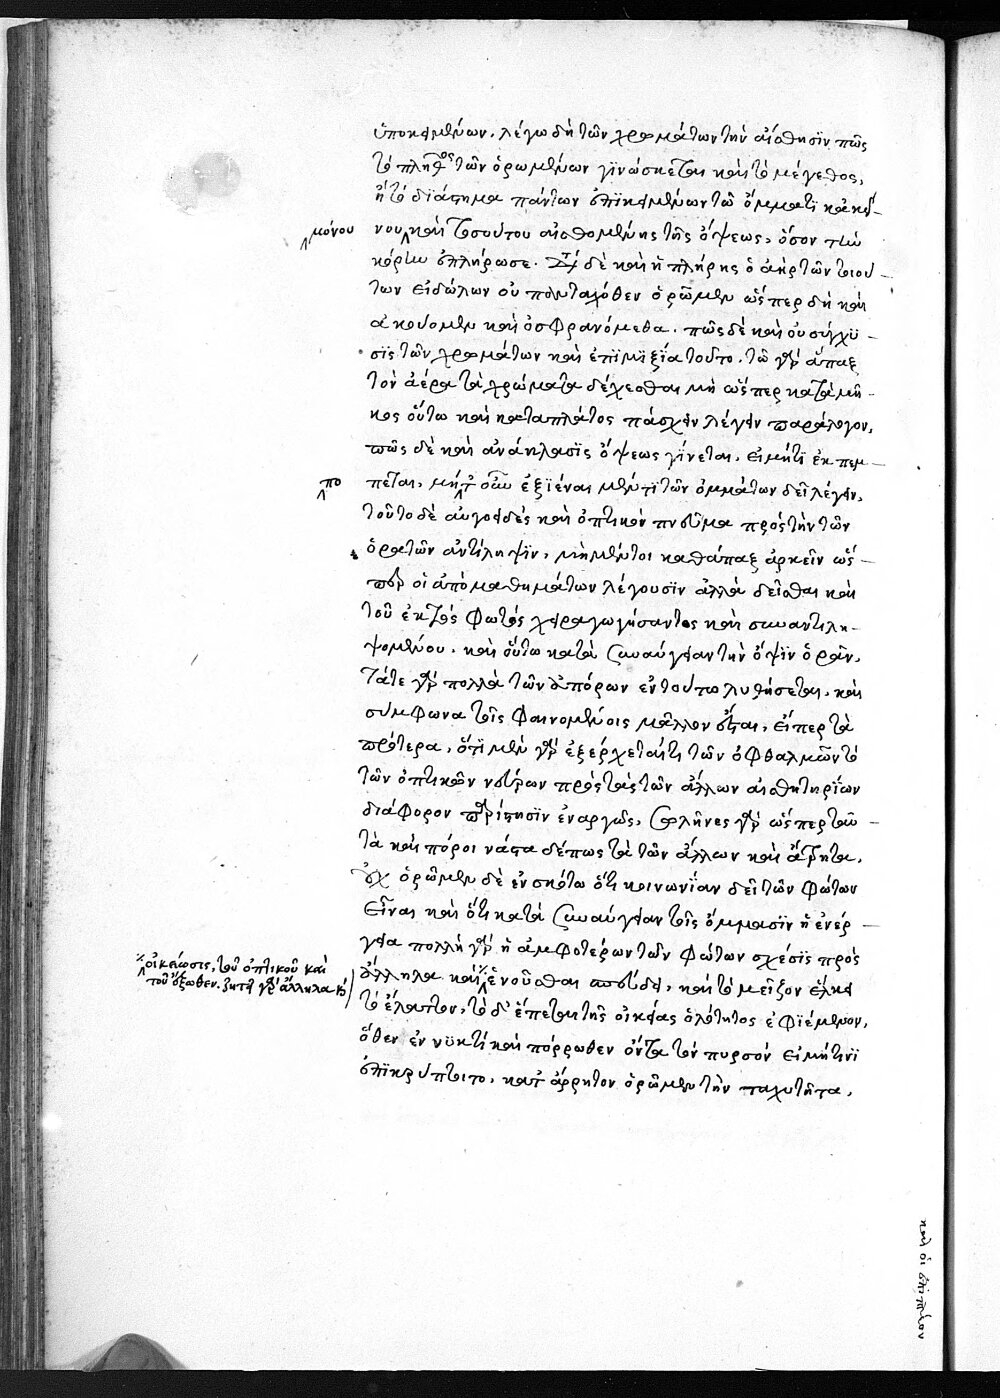 ὑποκειμένων. λέγω δὴ τῶν χρωμάτων τὴν αἴσθησϊν πῶς
τὸ πλῆθος τῶν ὁρωμένων γϊνώσκεται καὶ τὸ μέγεθος,
ἢ τὸ δϊάστημα πάντων ἐπϊκειμένων τῶ ὄμματϊ κἀκεί-
μόνου
νου καὶ τοσούτου αἰσθομένης τῆς ὄψεως, ὅσον τὴν
κόρην ἐπλήρωσε. δὲ καὶ ἢ πλήρης ὁ ἀὴρ τῶν τοιού-
των εἰδώλων οὐ πολυταχόθεν ὁρῶμεν ὥσπερ δὴ καὶ
ἀκούομεν καὶ ὀσφρανόμεθα. πῶς δὲ καὶ οὐ σύγχϋ-
σϊς τῶν χρωμάτων καὶ ἐπϊμϊξία τοῦτο. τῶ γὰρ ἅπαξ
τὸν ἀέρα τὰ χρώματα δέχεσθαι μὴ ὥσπερ κατὰ μῆ-
κος οὕτω καὶ κατὰ πλάτος πάσχειν λέγειν παράλογον,
πῶς δὲ καὶ ἀνάκλασϊς ὄψεως γίνεται, εἰ μήτϊ ἐκπεμ-
πο
πεται, μήτ οὖν ἐξϊέναι μέν τϊ τῶν ὀμμάτων δεῖ λέγειν,
τοῦτο δὲ αὐγοειδὲς καὶ ὀπτικὸν πνεῦμα πρὸς τὴν τῶν
ὁρατῶν ἀντίληψϊν, μὴ μέντοι καθάπαξ ἀρκεῖν ὥσ-
περ οἱ ἀπὸ μαθημάτων λέγουσϊν ἀλλὰ δεῖσθαι καὶ
τοῦ ἐκτὸς φωτὸς χειραγωγήσαντος καὶ συναντιλη-
ψομένου. καὶ οὕτω κατὰ συναύγειαν τὴν ὄψϊν ὁρᾶν,
τά τε γὰρ πολλὰ τῶν ἀπόρων ἐν τούτω λυθήσεται, καὶ
σύμφωνα τοῖς φαινομένοις μᾶλλον ἔσται, εἴπερ τὰ
πρότερα, ὅτϊ μὲν γὰρ ἐξέρχεταί τι τῶν ὀφθαλμῶν τὸ
τῶν ὀπτικῶν νεύρων πρὸς τὰς τῶν ἄλλων αἰσθητηρίων
διάφορον παρίστησϊν ἐναργῶς, σωλῆνες γὰρ ὥσπερ ταῦ-
τὰ καὶ πόροι ναστὰ δέ πως τὰ τῶν ἄλλων καὶ ἄτρητα.
οὐχ ὁρῶμεν δὲ ἐν σκότω ὅτι κοινωνίαν δεῖ τῶν φώτων
εἶναι καὶ ὅτι κατὰ συναύγειαν τοῖς ὄμμασϊν ἡ ἐνέρ-
γεια πολλὴ γὰρ ἡ ἀμφοτέρων τῶν φώτων σχέσϊς πρὸς
οἰκείωσις, τοῦ ὀπτικοῦ καὶ
τοῦ ἔξωθεν. ζητεῖ γὰρ ἄλληλα
ἄλληλα καὶ ἑνοῦσθαι σπεύδει, καὶ τὸ μεῖζον ἕλκει
τὸ ἔλαττον, τὸ δ' ἕπεται τῆς οἰκείας ὁλότητος ἐφϊέμενον,
ὅθεν ἐν νϋκτὶ καὶ πόρρωθεν ὄντα τὸν πυρσὸν εἰ μήτινϊ
ἐπϊκρύπτοιτο, κατ ἄρρητον ὁρῶμεν τὴν ταχυτῆτα.